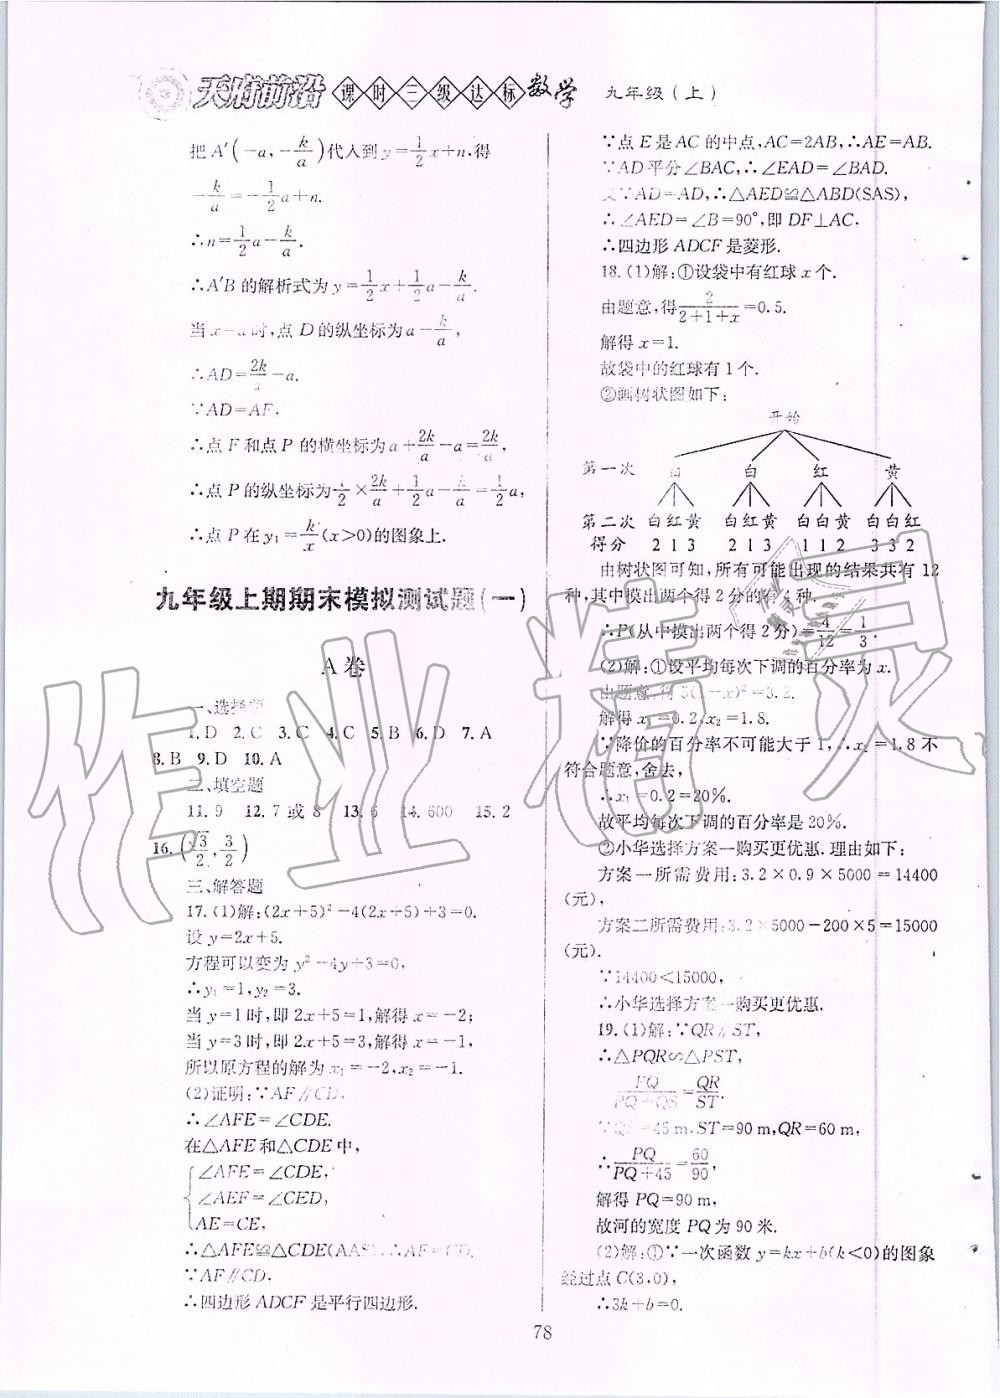 天府前沿 课时三级达标 数学 九年级(上)
把 A′(−a,−k/a)代入到 y=1/2x+n,得
−k/a=−1/2a+n.
∴n=1/2a−k/a.
∴A′B 的解析式为 y=1/2x+1/2a−k/a.
当 x=a 时,点 D 的纵坐标为 a−k/a,
∴AD=2k/a−a.
∵AD=AF,
∴点 F 和点 P 的横坐标为 a+2k/a−a=2k/a,
∴点 P 的纵坐标为1/2×2k/a+1/2a−k/a=1/2a,
∴点 P 在 y₁=k/x(x>0)的图象上.
九年级上期期末模拟测试题(一)
A 卷
一、选择题
1.D 2.C 3.C 4.C 5.B 6.D 7.A
8.B 9.D 10.A
二、填空题
11.9 12.7 或 8 13.6 14.600 15.2
16.(√3/2,3/2)
三、解答题
17.(1)解:(2x+5)²−4(2x+5)+3=0.
设 y=2x+5.
方程可以变为 y²−4y+3=0,
∴y₁=1,y₂=3.
当 y=1时,即 2x+5=1,解得 x=−2;
当 y=3时,即 2x+5=3,解得 x=−1.
所以原方程的解为 x₁=−2,x₂=−1.
(2)证明:∵AF∥CD,
∴∠AFE=∠CDE.
在△AFE 和△CDE 中,
∠AFE=∠CDE,
∠AEF=∠CED,
AE=CE,
∴△AFE≌△CDE(AAS),∴AF=CD.
∵AF∥CD,
∴四边形 ADCF 是平行四边形.
∵点 E 是 AC 的中点,AC=2AB,∴AE=AB.
∵AD 平分∠BAC,∴∠EAD=∠BAD.
又∵AD=AD,∴△AED≌△ABD(SAS),
∴∠AED=∠B=90°,即 DF⊥AC.
∴四边形 ADCF 是菱形.
18.(1)解:①设袋中有红球 x 个.
由题意,得2/(2+1+x)=0.5.
解得 x=1.
故袋中的红球有 1 个.
②画树状图如下:
开始
第一次 白 白 红 黄
第二次 白红黄 白红黄 白白黄 白白红
得分 2 1 3 2 1 3 1 1 2 3 3 2
由树状图可知,所有可能出现的结果共有 12
种,其中摸出两个得 2 分的有 4 种.
∴P(从中摸出两个得 2 分)=4/12=1/3.
(2)解:①设平均每次下调的百分率为 x.
由题意,得 5(1−x)²=3.2.
解得 x₁=0.2,x₂=1.8.
∵降价的百分率不可能大于 1,∴x₂=1.8 不
符合题意,舍去,
∴x₁=0.2=20%.
故平均每次下调的百分率是 20%.
②小华选择方案一购买更优惠.理由如下:
方案一所需费用:3.2×0.9×5000=14400
(元),
方案二所需费用:3.2×5000−200×5=15000
(元).
∵14400<15000,
∴小华选择方案一购买更优惠.
19.(1)解:∵QR∥ST,
∴△PQR∽△PST,
PQ/(PQ+QS)=QR/ST.
∵QS=45 m,ST=90 m,QR=60 m,
∴PQ/(PQ+45)=60/90,
解得 PQ=90 m,
故河的宽度 PQ 为 90 米.
(2)解:①∵一次函数 y=kx+b(k<0)的图象
经过点 C(3,0),
∴3k+b=0.
78
作业精灵